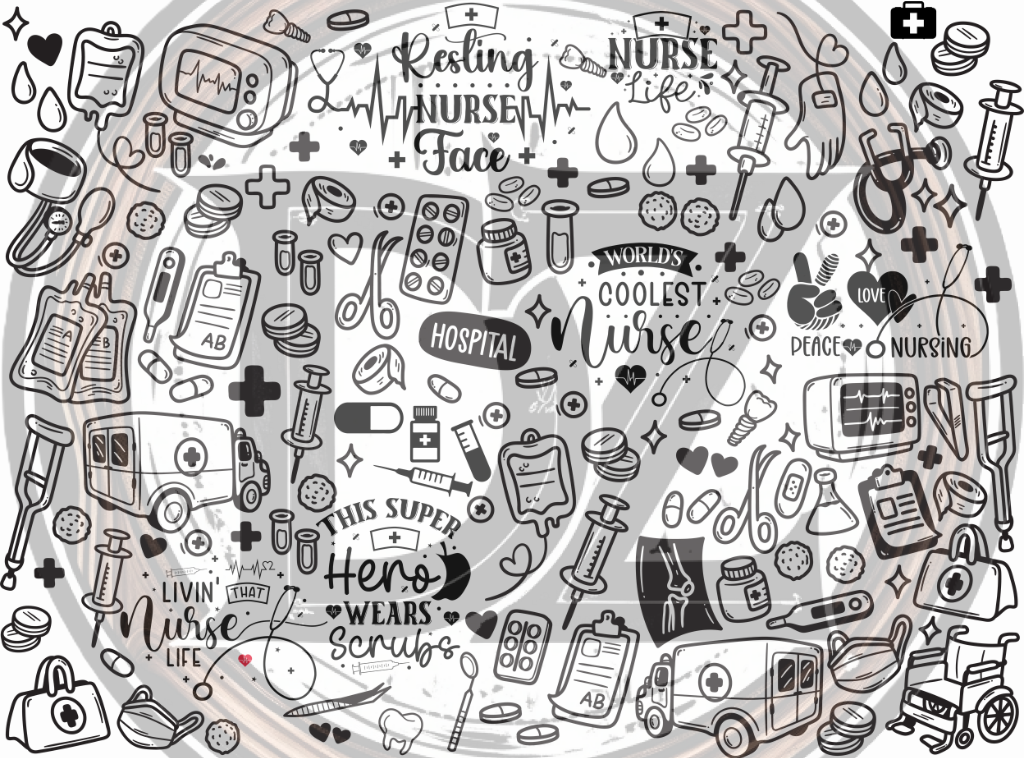 Resling
NURSE
Face
NURSE
Life
WORLD'S
COOLEST
Nurse
LOVE
PEACE NURSING
HOSPITAL
AB
B
THIS SUPER
Hero
WEARS
Scrubs
LIVIN'
THAT
Nurse
LIFE
AB